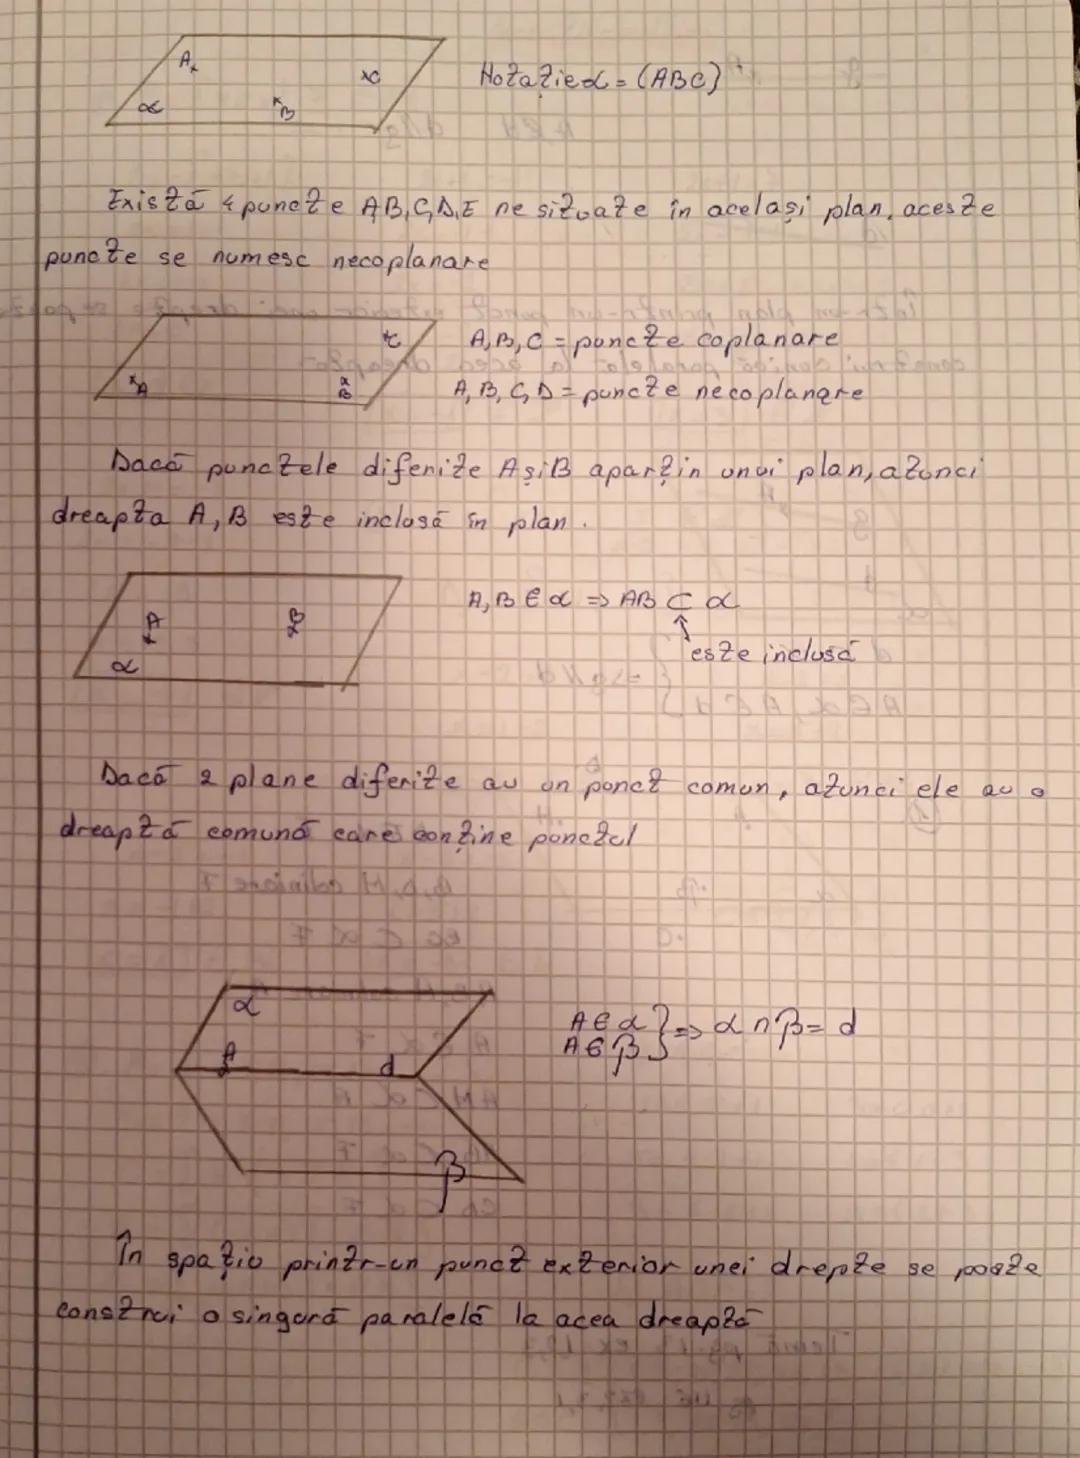 A
C
α
B
Notație α = (ABC)
Există 4 puncte A,B,C,D,E nesituate în același plan, aceste
puncte se numesc necoplanare
C
A
B
A, B, C = puncte coplanare
A, B, C, D = puncte necoplanare
Dacă punctele diferite A și B aparțin unui plan, atunci
dreapta A, B este inclusă în plan.
A
B
α
A, B ∈ α ⇒ AB ⊂ α
este inclusă
Dacă 2 plane diferite au un punct comun, atunci ele au o
dreaptă comună care conține punctul
α
A
d
β
A ∈ α
A ∈ β } ⇒ α ∩ β = d
În spațiu printr-un punct exterior unei drepte se poate
construi o singură paralelă la acea dreaptă